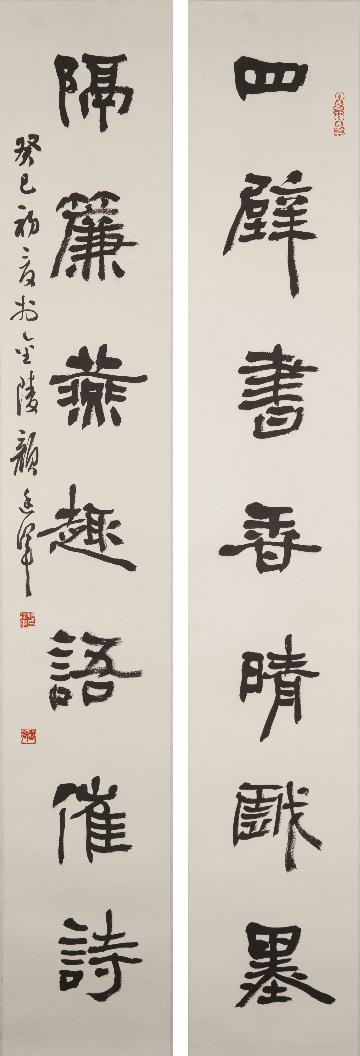 四壁書香晴戲墨
隔簾燕趣語催詩
癸巳初夏於金陵顏